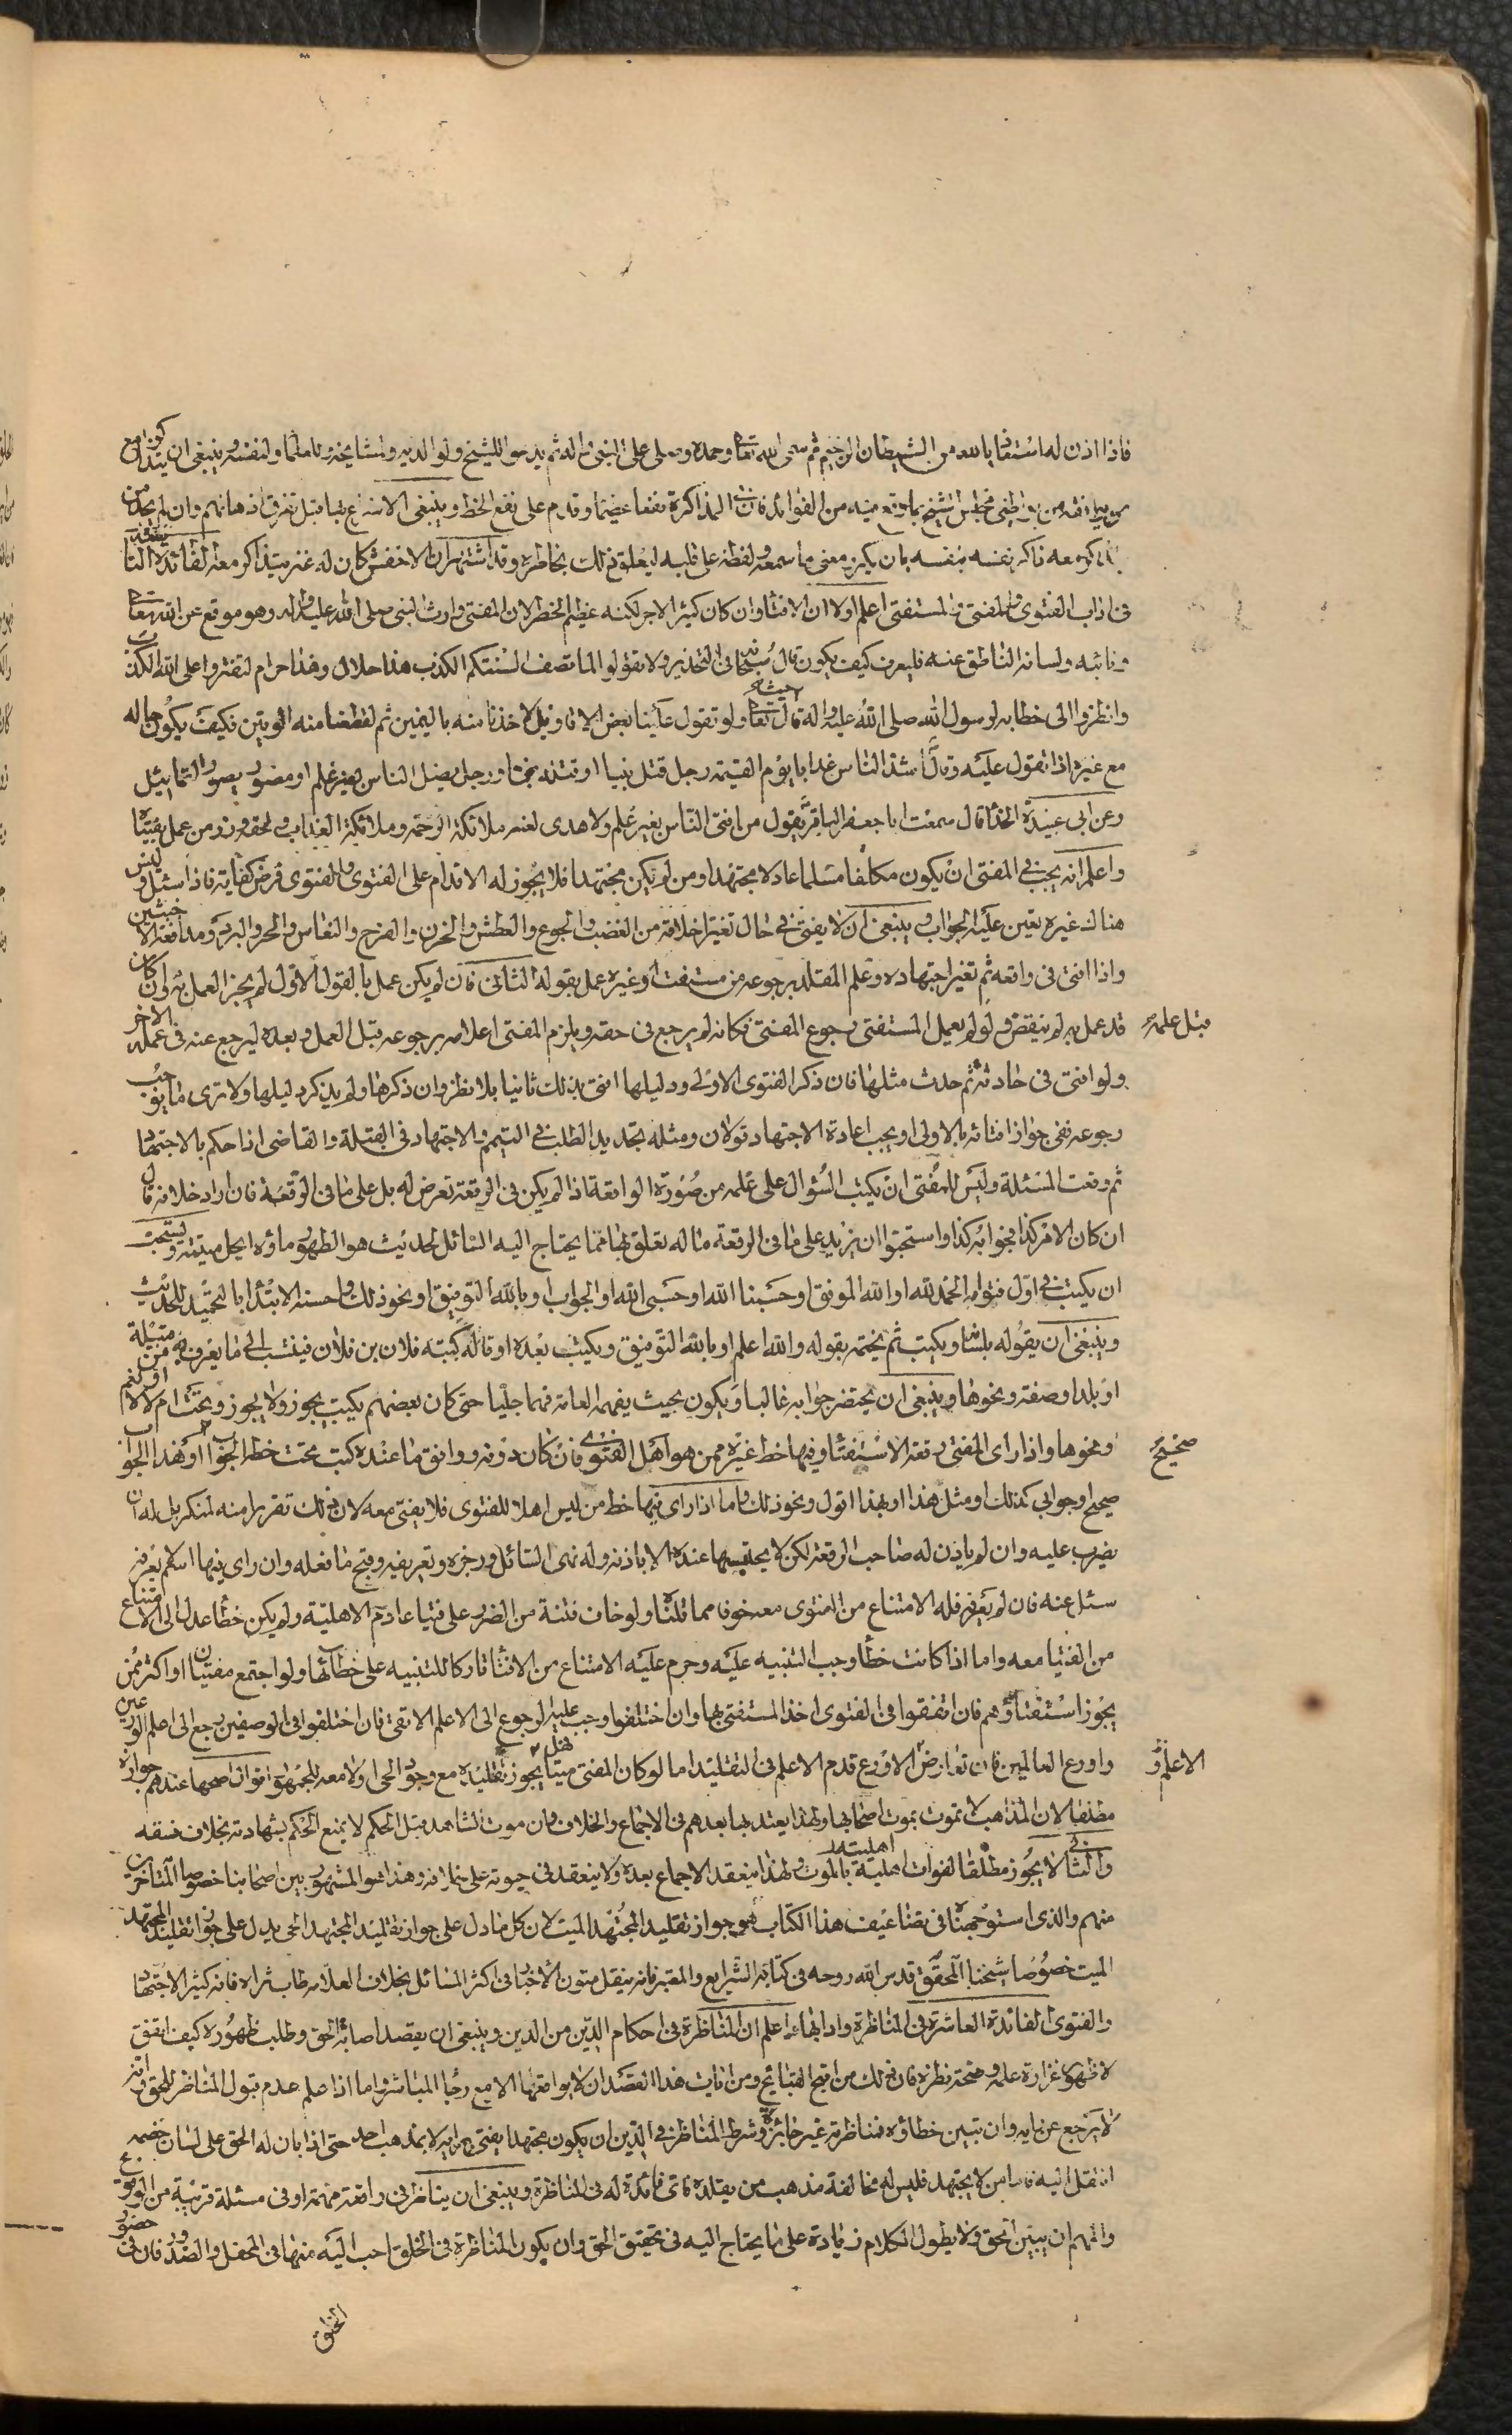 فاذا اذن له استعاذ بالله من الشيطان الرجيم ثم سمى الله تعالى وحمده وصلى على النبي وآله ثم يدعو للشيخ ولوالديه ولمشايخه وللعلماء ولنفسه وينبغي ان يتذاكر مع
من يرافقه من مواظبي مجلس الشيخ بما وقع فيه من الفوائد فان في المذاكرة نفعا عظيما وقدم على نفع الحفظ وينبغي الاسراع بها قبل تفرق اذهانهم وان لم يجد من
يذاكره معه ذاكر نفسه بنفسه بان يكرر معنى ما سمعه ولفظه على قلبه ليعلق ذلك بخاطره وقد اشتهر ان الاخفش كان له عنز يتذاكر معه الفائدة التاسعة
في آداب الفتوى والمفتي والمستفتي اعلم اولا ان الافتاء وان كان كثير الاجر لكنه عظيم الخطر لان المفتي وارث النبي صلى الله عليه وآله وهو موقع عن الله تعالى
ونائبه ولسانه الناطق عنه فليعرف كيف يكون قال سبحانه في التحذير ولا تقولوا لما تصف السنتكم الكذب هذا حلال وهذا حرام لتفتروا على الله الكذب
وانظروا الى خطابه لرسول الله صلى الله عليه وآله حيث قال تعالى ولو تقول علينا بعض الاقاويل لاخذنا منه باليمين ثم لقطعنا منه الوتين فكيف يكون حاله
مع غيره اذا تقول عليه وقال اشد الناس عذابا يوم القيمة رجل قتل نبيا او قتله نبي او رجل يضل الناس بغير علم او مصور يصور التماثيل
وعن ابي عبيدة الحذاء قال سمعت ابا جعفر الباقر يقول من افتى الناس بغير علم ولا هدى لعنه ملائكة الرحمة وملائكة العذاب ولحقه وزر من عمل بفتياه
واعلم انه يجب في المفتي ان يكون مكلفا مسلما عادلا مجتهدا ومن لم يكن مجتهدا فلا يجوز له الاقدام على الفتوى والفتوى فرض كفاية فاذا سئل وليس
هناك غيره تعين عليه الجواب وينبغي ان لا يفتي في حال تغير اخلاقه من الغضب والجوع والعطش والحزن والفرح والنعاس والحر والبرد ومدافعة الاخبثين
واذا افتى في واقعة ثم تغير اجتهاده وعلم المقلد برجوعه من مستفت او غيره عمل بقوله الثاني فان لم يكن عمل بالقول الاول لم يجز العمل به وان كان
قد عمل به لم ينقض ولو لم يعمل المستفتي برجوع المفتي فكانه لم يرجع في حقه ويلزم المفتي اعلامه برجوعه قبل العمل وبعده ليرجع عنه في عمله الاخر
قبل علمه
ولو افتى في حادثة ثم حدث مثلها فان ذكر الفتوى الاولى ودليلها افتى بذلك ثانيا بلا نظر وان ذكرها ولم يذكر دليلها ولا ترى ما يوجب
رجوعه نفي جواز افتائه بالاولى او يجب اعادة الاجتهاد قولان ومثله تجديد الطلب في التيمم والاجتهاد في القبلة والقاضي اذا حكم بالاجتهاد
ثم وقعت المسئلة وليس للمفتي ان يكتب السؤال على علمه من صورة الواقعة اذا لم يكن في الرقعة تعرض له بل على ما في الرقعة فان اراد خلافه قال
ان كان الامر كذا فجوابه كذا واستحبوا ان يزيد على ما في الرقعة ما له تعلق بها مما يحتاج اليه السائل لحديث هو الطهور ماؤه الحل ميتته ويستحب
ان يكتب في اول فتواه الحمد لله او الله الموفق او حسبنا الله او حسبي الله او الجواب وبالله التوفيق او نحو ذلك واحسنه الابتداء بالتحميد للحديث
وينبغي ان يقوله بلسانه ويكتب ثم يختمه بقوله والله اعلم او بالله التوفيق ويكتب بعده او قاله كتبه فلان بن فلان فينتسب الى ما يعرف به من قبيلة
او بلد او صفة ونحوها وينبغي ان يختصر جوابه غالبا ويكون بحيث يفهمه العامة فهما جليا حتى كان بعضهم يكتب يجوز ولا يجوز وتحت ام لا لا او نعم
ونحوها واذا راى المفتي رقعة الاستفتاء وفيها خط غيره ممن هو اهل الفتوى فان كان دونه ووافق ما عنده كتب تحت خطه الجواب او هذا الجواب
صحيح
صحيح او جوابي كذلك او مثل هذا او بهذا اقول ونحو ذلك واما اذا راى فيها خط من ليس اهلا للفتوى فلا يفتي معه لان في ذلك تقريرا منه لمنكر بل له ان
يضرب عليه وان لم ياذن له صاحب الرقعة لكن لا يحبسها عنده الا باذنه وله نهي السائل وزجره وتعريفه قبح ما فعله وان راى فيها اسم من لا يعرفه
سئل عنه فان لم يعرفه فله الامتناع من الفتوى معه خوفا مما قلناه ولو خاف فتنة من الضرب على فتيا عادم الاهلية ولم يكن خطأ عدل الى الامتناع
من الفتيا معه واما اذا كانت خطأ وجب التنبيه عليه وحرم عليه الامتناع من الافتاء تاركا للتنبيه على خطائها ولو اجتمع مفتيان او اكثر ممن
يجوز استفتاؤهم فان اتفقوا في الفتوى اخذ المستفتي بها وان اختلفوا وجب عليه الرجوع الى الاعلم الاتقى فان اختلفوا في الوصفين رجع الى اعلم الورعين
واورع العالمين فان تعارض الاورع قدم الاعلم في التقليد اما لو كان المفتي ميتا فهل يجوز تقليده مع وجود الحي او لا معه للجمهور اقوال اصحها عندهم جوازه
الاعلم و
مطلقا لان المذاهب لا تموت بموت اصحابها ولهذا يعتد بها بعدهم في الاجماع والخلاف ولان موت الشاهد قبل الحكم لا يمنع الحكم بشهادته بخلاف فسقه
والثاني لا يجوز مطلقا لفوات اهليته بالموت ولهذا ينعقد الاجماع بعده ولا ينعقد في حيوته على خلافه وهذا هو المشهور بين اصحابنا خصوصا المتاخرين
منهم والذي استوجهناه في تضاعيف هذا الكتاب هو جواز تقليد المجتهد الميت لان كل ما دل على جواز تقليد المجتهد الحي يدل على جواز تقليد المجتهد
الميت خصوصا شيخنا المحقق قدس الله روحه في كتابه الشرايع والمعتبر فانه ينقل متون الاخبار في اكثر المسائل بخلاف العلامة طاب ثراه فانه كثير الاجتهاد
والفتوى الفائدة العاشرة في المناظرة وآدابها اعلم ان المناظرة في احكام الدين من الدين وينبغي ان يقصد اصابة الحق وطلب ظهوره كيف اتفق
لا ظهور غزارة علمه وصحة نظره فان ذلك من اقبح القبائح ومن آيات هذا القصد ان لا يوافقها الا مع رجاء التاثير واما اذا علم عدم قبول المناظر للحق وانه
لا يرجع عن رايه وان تبين خطاؤه فمناظرته غير جائزة وشرط المناظر في الدين ان يكون مجتهدا يفتي برايه لا بمذهب احد حتى اذا بان له الحق على لسان خصمه
انتقل اليه فاما من لا يجتهد فليس له مخالفة مذهب من يقلده فاي فائدة له في المناظرة وينبغي ان يناظر في واقعة مهمة او في مسئلة قريبة من الوقوع
والمهم ان يبين الحق ولا يطول الكلام زيادة على ما يحتاج اليه في تحقيق الحق وان يكون المناظرة في الخلوة احب اليه منها في المحفل والصدور فان في حضور
الخلق